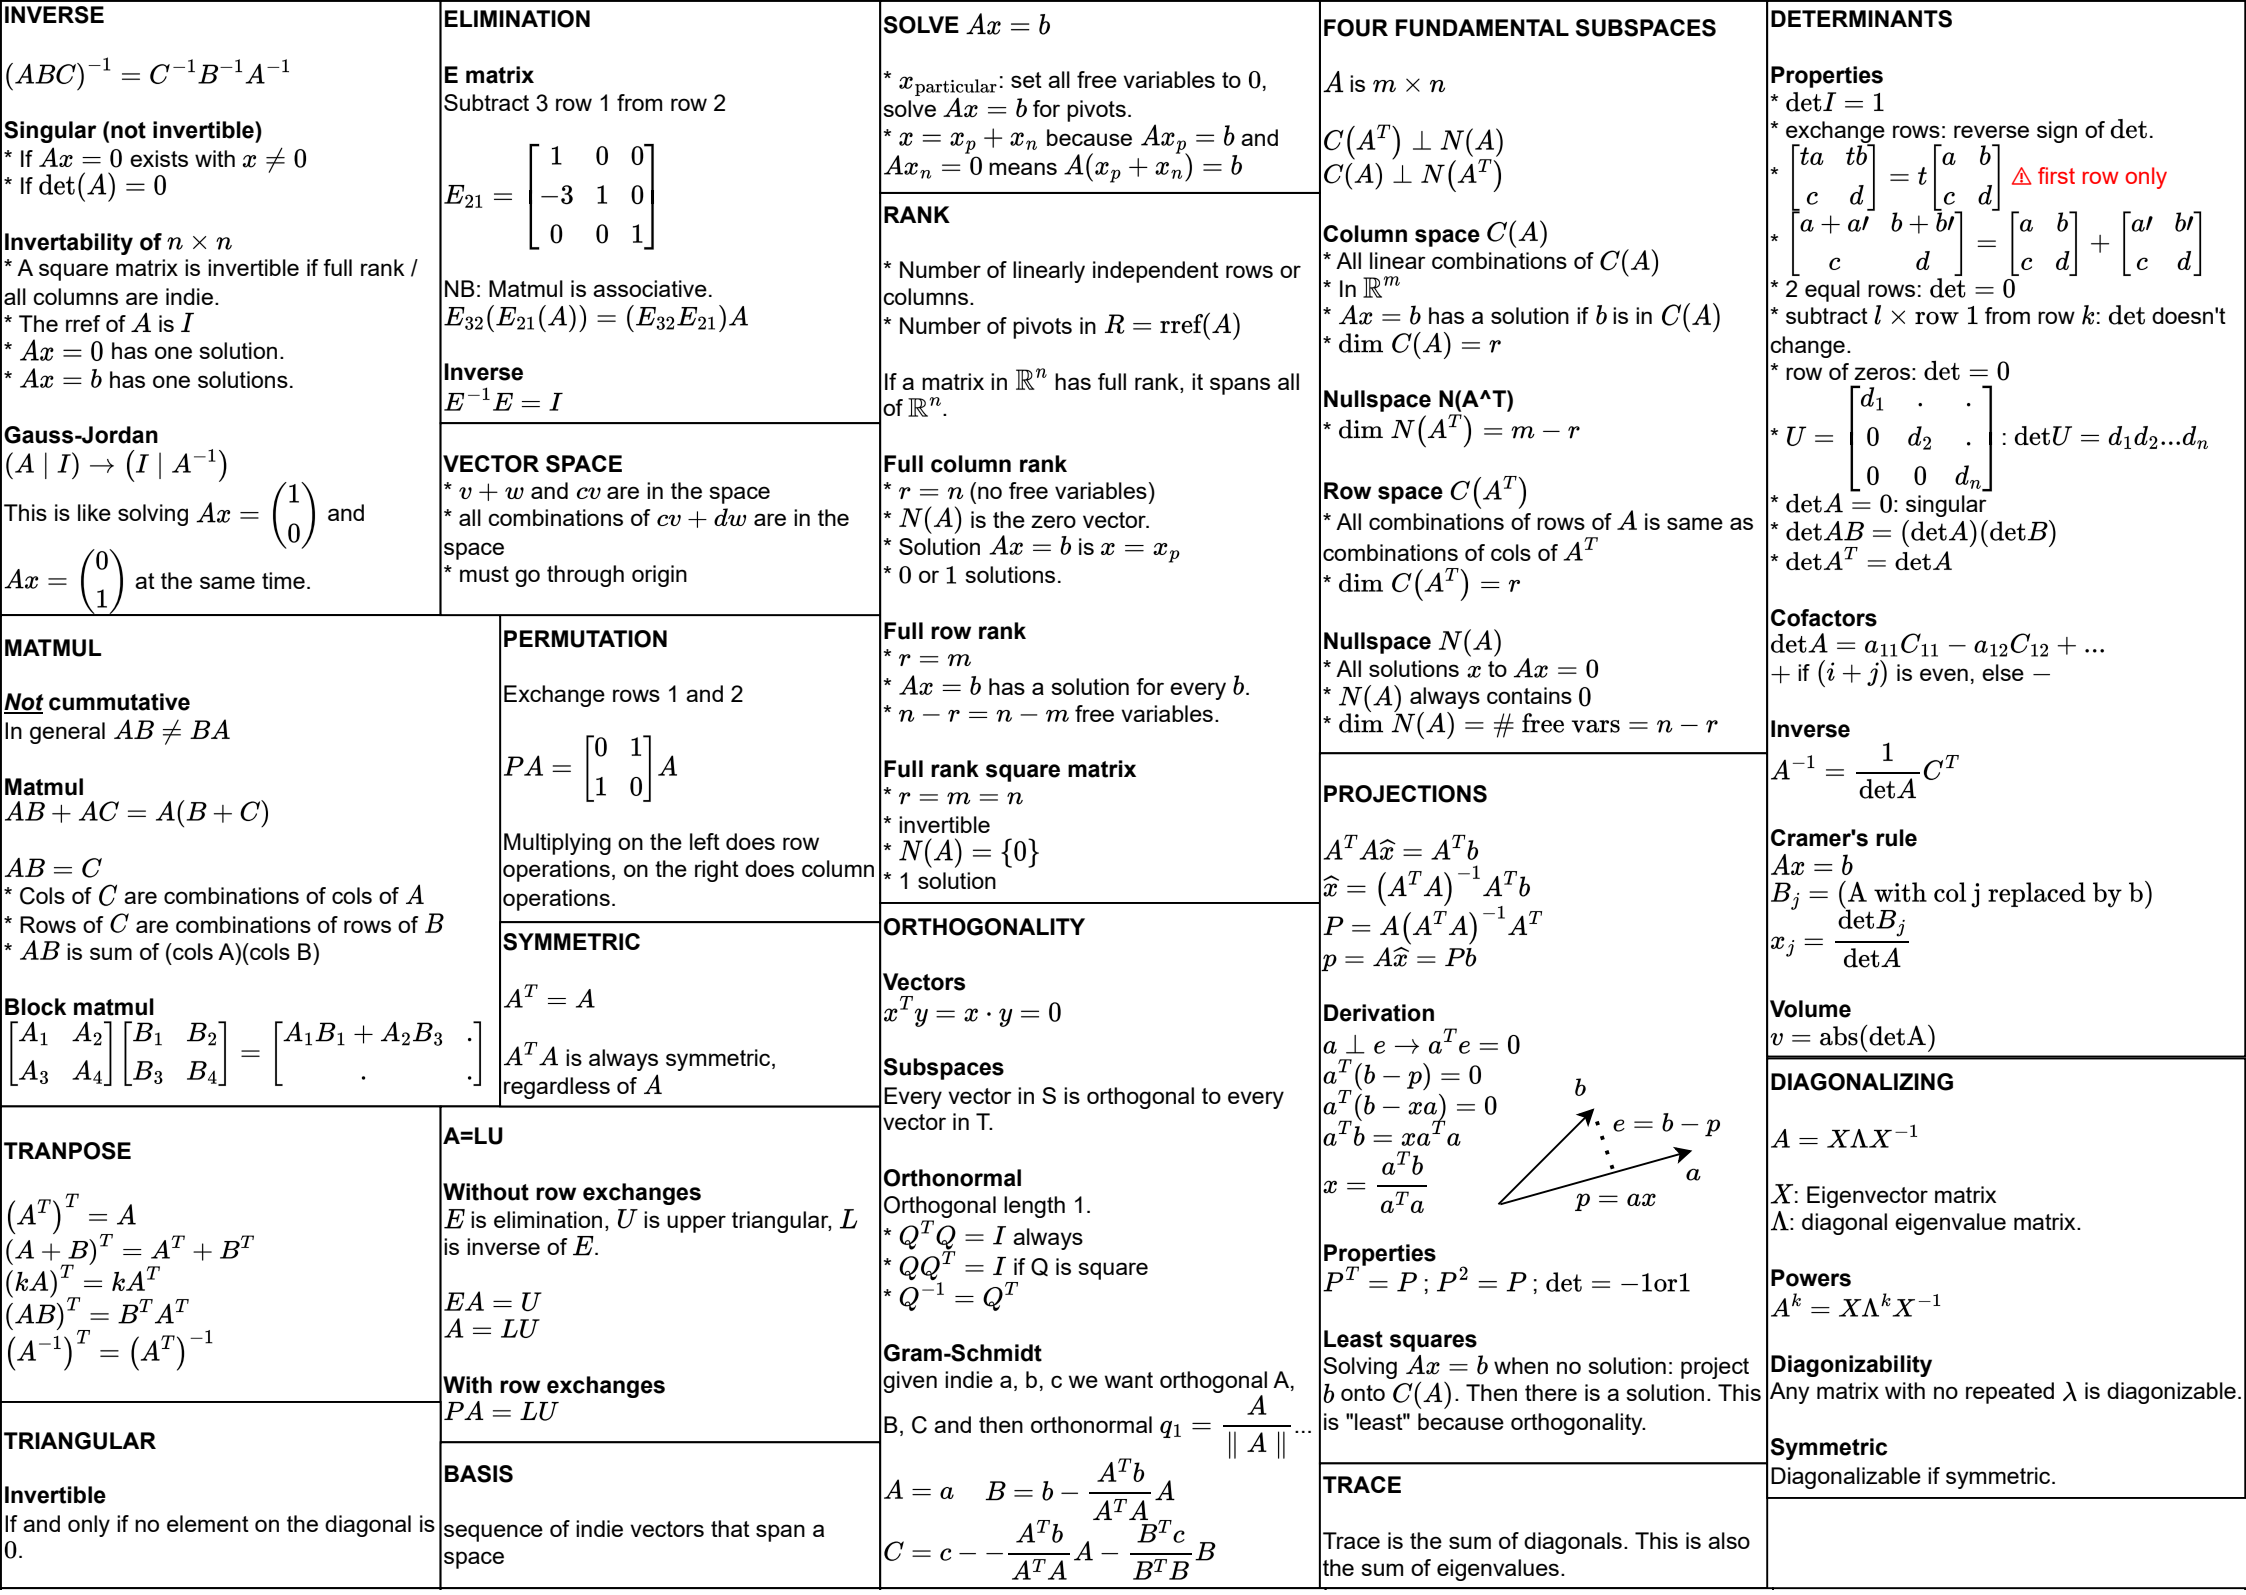 INVERSE
(ABC)⁻¹ = C⁻¹B⁻¹A⁻¹
Singular (not invertible)
* If Ax = 0 exists with x ≠ 0
* If det(A) = 0
Invertability of n × n
* A square matrix is invertible if full rank /
all columns are indie.
* The rref of A is I
* Ax = 0 has one solution.
* Ax = b has one solutions.
Gauss-Jordan
(A | I) → (I | A⁻¹)
This is like solving Ax = (1 0) and
Ax = (0 1) at the same time.
ELIMINATION
E matrix
Subtract 3 row 1 from row 2
E₂₁ = [1 0 0
−3 1 0
0 0 1]
NB: Matmul is associative.
E₃₂(E₂₁(A)) = (E₃₂E₂₁)A
Inverse
E⁻¹E = I
VECTOR SPACE
* v + w and cv are in the space
* all combinations of cv + dw are in the
space
* must go through origin
MATMUL
Not cummutative
In general AB ≠ BA
Matmul
AB + AC = A(B + C)
AB = C
* Cols of C are combinations of cols of A
* Rows of C are combinations of rows of B
* AB is sum of (cols A)(cols B)
Block matmul
[A₁ A₂] [B₁ B₂] = [A₁B₁ + A₂B₃ .]
[A₃ A₄] [B₃ B₄] [. .]
PERMUTATION
Exchange rows 1 and 2
PA = [0 1
1 0] A
Multiplying on the left does row
operations, on the right does column
operations.
SYMMETRIC
Aᵀ = A
AᵀA is always symmetric,
regardless of A
TRANPOSE
(Aᵀ)ᵀ = A
(A + B)ᵀ = Aᵀ + Bᵀ
(kA)ᵀ = kAᵀ
(AB)ᵀ = BᵀAᵀ
(A⁻¹)ᵀ = (Aᵀ)⁻¹
TRIANGULAR
Invertible
If and only if no element on the diagonal is
0.
A=LU
Without row exchanges
E is elimination, U is upper triangular, L
is inverse of E.
EA = U
A = LU
With row exchanges
PA = LU
BASIS
sequence of indie vectors that span a
space
SOLVE Ax = b
* x_particular: set all free variables to 0,
solve Ax = b for pivots.
* x = x_p + x_n because Ax_p = b and
Ax_n = 0 means A(x_p + x_n) = b
RANK
* Number of linearly independent rows or
columns.
* Number of pivots in R = rref(A)
If a matrix in ℝⁿ has full rank, it spans all
of ℝⁿ.
Full column rank
* r = n (no free variables)
* N(A) is the zero vector.
* Solution Ax = b is x = x_p
* 0 or 1 solutions.
Full row rank
* r = m
* Ax = b has a solution for every b.
* n − r = n − m free variables.
Full rank square matrix
* r = m = n
* invertible
* N(A) = {0}
* 1 solution
ORTHOGONALITY
Vectors
xᵀy = x · y = 0
Subspaces
Every vector in S is orthogonal to every
vector in T.
Orthonormal
Orthogonal length 1.
* QᵀQ = I always
* QQᵀ = I if Q is square
* Q⁻¹ = Qᵀ
Gram-Schmidt
given indie a, b, c we want orthogonal A,
B, C and then orthonormal q₁ = A / ‖ A ‖ ...
A = a B = b − (Aᵀb / AᵀA) A
C = c − − (Aᵀb / AᵀA) A − (Bᵀc / BᵀB) B
FOUR FUNDAMENTAL SUBSPACES
A is m × n
C(Aᵀ) ⊥ N(A)
C(A) ⊥ N(Aᵀ)
Column space C(A)
* All linear combinations of C(A)
* In ℝᵐ
* Ax = b has a solution if b is in C(A)
* dim C(A) = r
Nullspace N(A^T)
* dim N(Aᵀ) = m − r
Row space C(Aᵀ)
* All combinations of rows of A is same as
combinations of cols of Aᵀ
* dim C(Aᵀ) = r
Nullspace N(A)
* All solutions x to Ax = 0
* N(A) always contains 0
* dim N(A) = # free vars = n − r
PROJECTIONS
AᵀAx̂ = Aᵀb
x̂ = (AᵀA)⁻¹Aᵀb
P = A(AᵀA)⁻¹Aᵀ
p = Ax̂ = Pb
Derivation
a ⊥ e → aᵀe = 0
aᵀ(b − p) = 0
aᵀ(b − xa) = 0
aᵀb = xaᵀa
x = aᵀb / aᵀa
b
e = b − p
a
p = ax
Properties
Pᵀ = P ; P² = P ; det = −1or1
Least squares
Solving Ax = b when no solution: project
b onto C(A). Then there is a solution. This
is "least" because orthogonality.
TRACE
Trace is the sum of diagonals. This is also
the sum of eigenvalues.
DETERMINANTS
Properties
* detI = 1
* exchange rows: reverse sign of det.
* [ta tb
c d] = t [a b
c d] ⚠ first row only
* [a + a′ b + b′
c d] = [a b
c d] + [a′ b′
c d]
* 2 equal rows: det = 0
* subtract l × row 1 from row k: det doesn't
change.
* row of zeros: det = 0
* U = [d₁ . .
0 d₂ .
0 0 dₙ] : detU = d₁d₂...dₙ
* detA = 0: singular
* detAB = (detA)(detB)
* detAᵀ = detA
Cofactors
detA = a₁₁C₁₁ − a₁₂C₁₂ + ...
+ if (i + j) is even, else −
Inverse
A⁻¹ = 1 / detA Cᵀ
Cramer's rule
Ax = b
B_j = (A with col j replaced by b)
x_j = detB_j / detA
Volume
v = abs(detA)
DIAGONALIZING
A = XΛX⁻¹
X: Eigenvector matrix
Λ: diagonal eigenvalue matrix.
Powers
Aᵏ = XΛᵏX⁻¹
Diagonizability
Any matrix with no repeated λ is diagonizable.
Symmetric
Diagonalizable if symmetric.